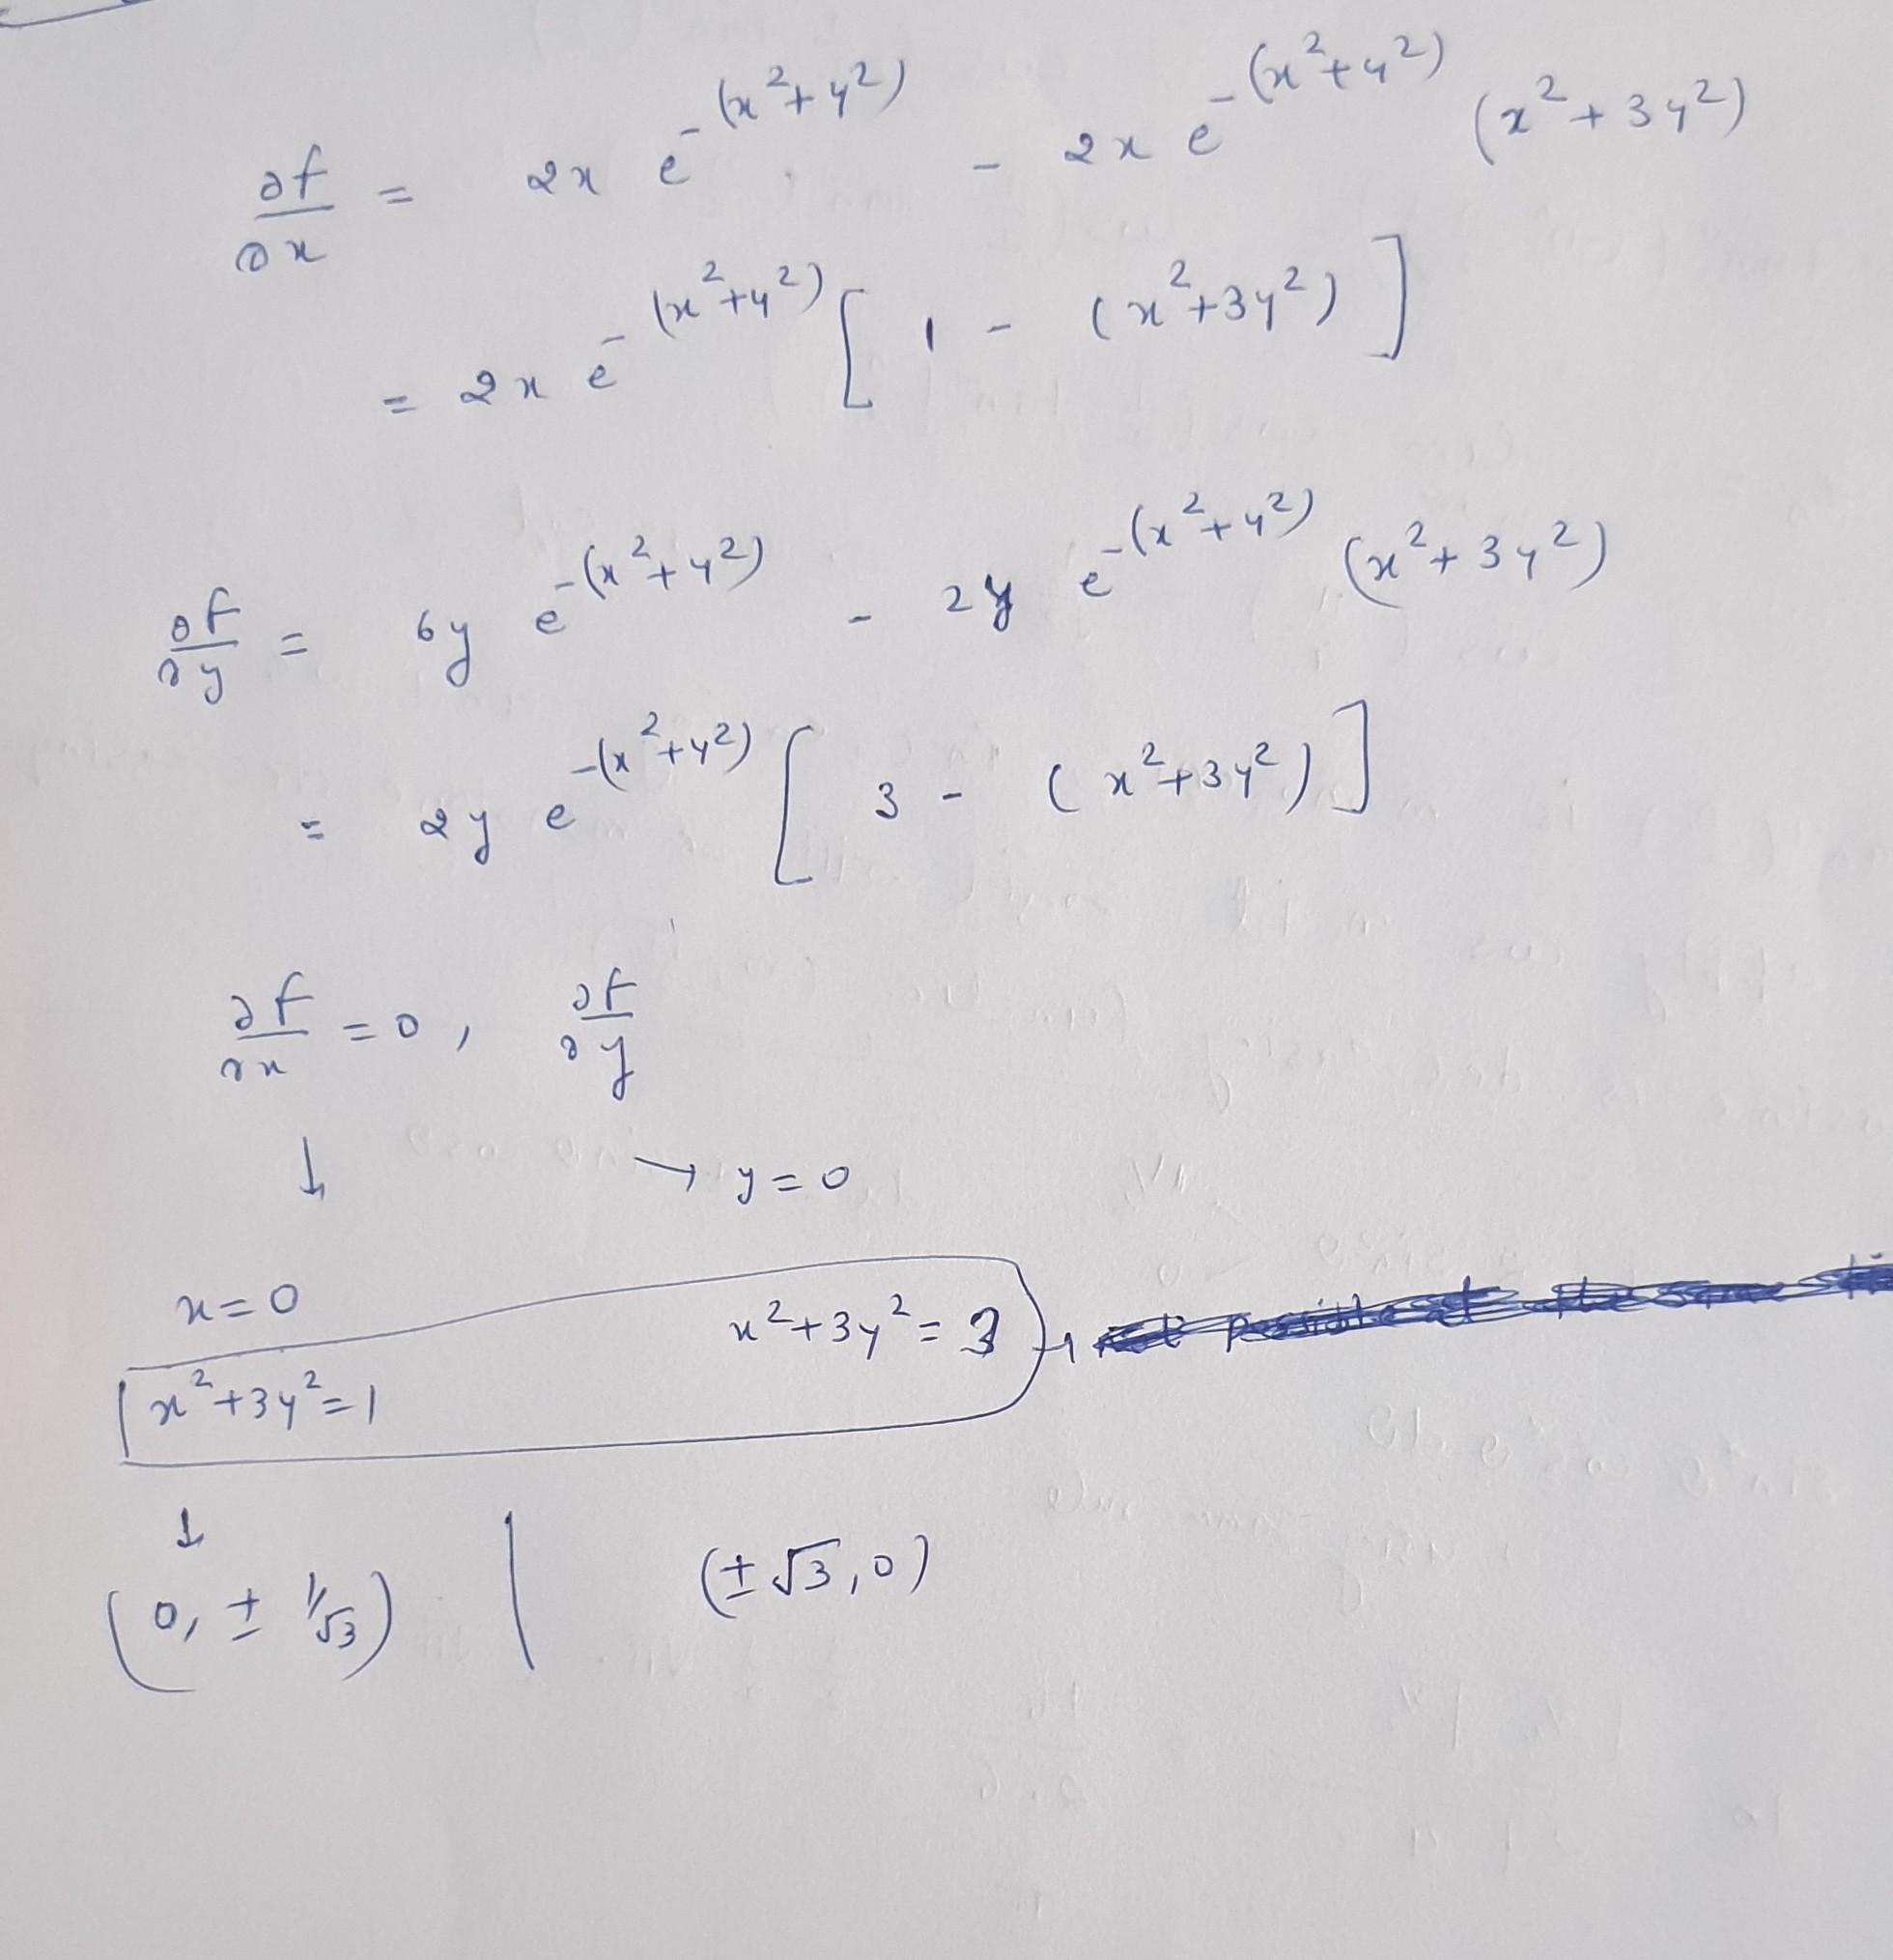 ∂f/∂x = 2x e^-(x²+y²) - 2x e^-(x²+y²) (x²+3y²)
= 2x e^-(x²+y²) [ 1 - (x²+3y²) ]
∂f/∂y = 6y e^-(x²+y²) - 2y e^-(x²+y²) (x²+3y²)
= 2y e^-(x²+y²) [ 3 - (x²+3y²) ]
∂f/∂x = 0, ∂f/∂y
↓ → y=0
x=0
x²+3y²=3 →
x²+3y²=1
↓
(0, ± 1/√3) | (±√3, 0)